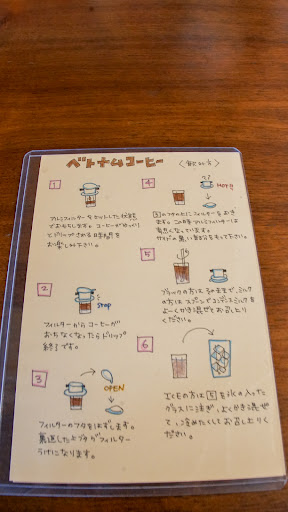 ベトナムコーヒー 〈飲み方〉
1
アルミフィルターをセットした状態
でお出しします。コーヒーがゆっくり
とドリップされる時間を
お楽しみ下さい。
2
stop
フィルターからコーヒーが
おちなくなったらドリップ
終了です。
3
OPEN
フィルターのフタをはずします。
裏返した上ブタがフィルター
うけになります。
4
HOT!
3のフタの上にフィルターをおき
ます。この時アルミフィルターは
高温になっています。
サイドの黒い部分をもって下さい。
5
ブラックの方はそのままで、ミルク
の方はスプーンでコンデンスミルクを
よーくかき混ぜてお召し上がり
ください。
6
ICEの方は5を氷の入った
グラスに注ぎ、よくかき混ぜ
て、冷めたくしてお召し上がりく
ださい。